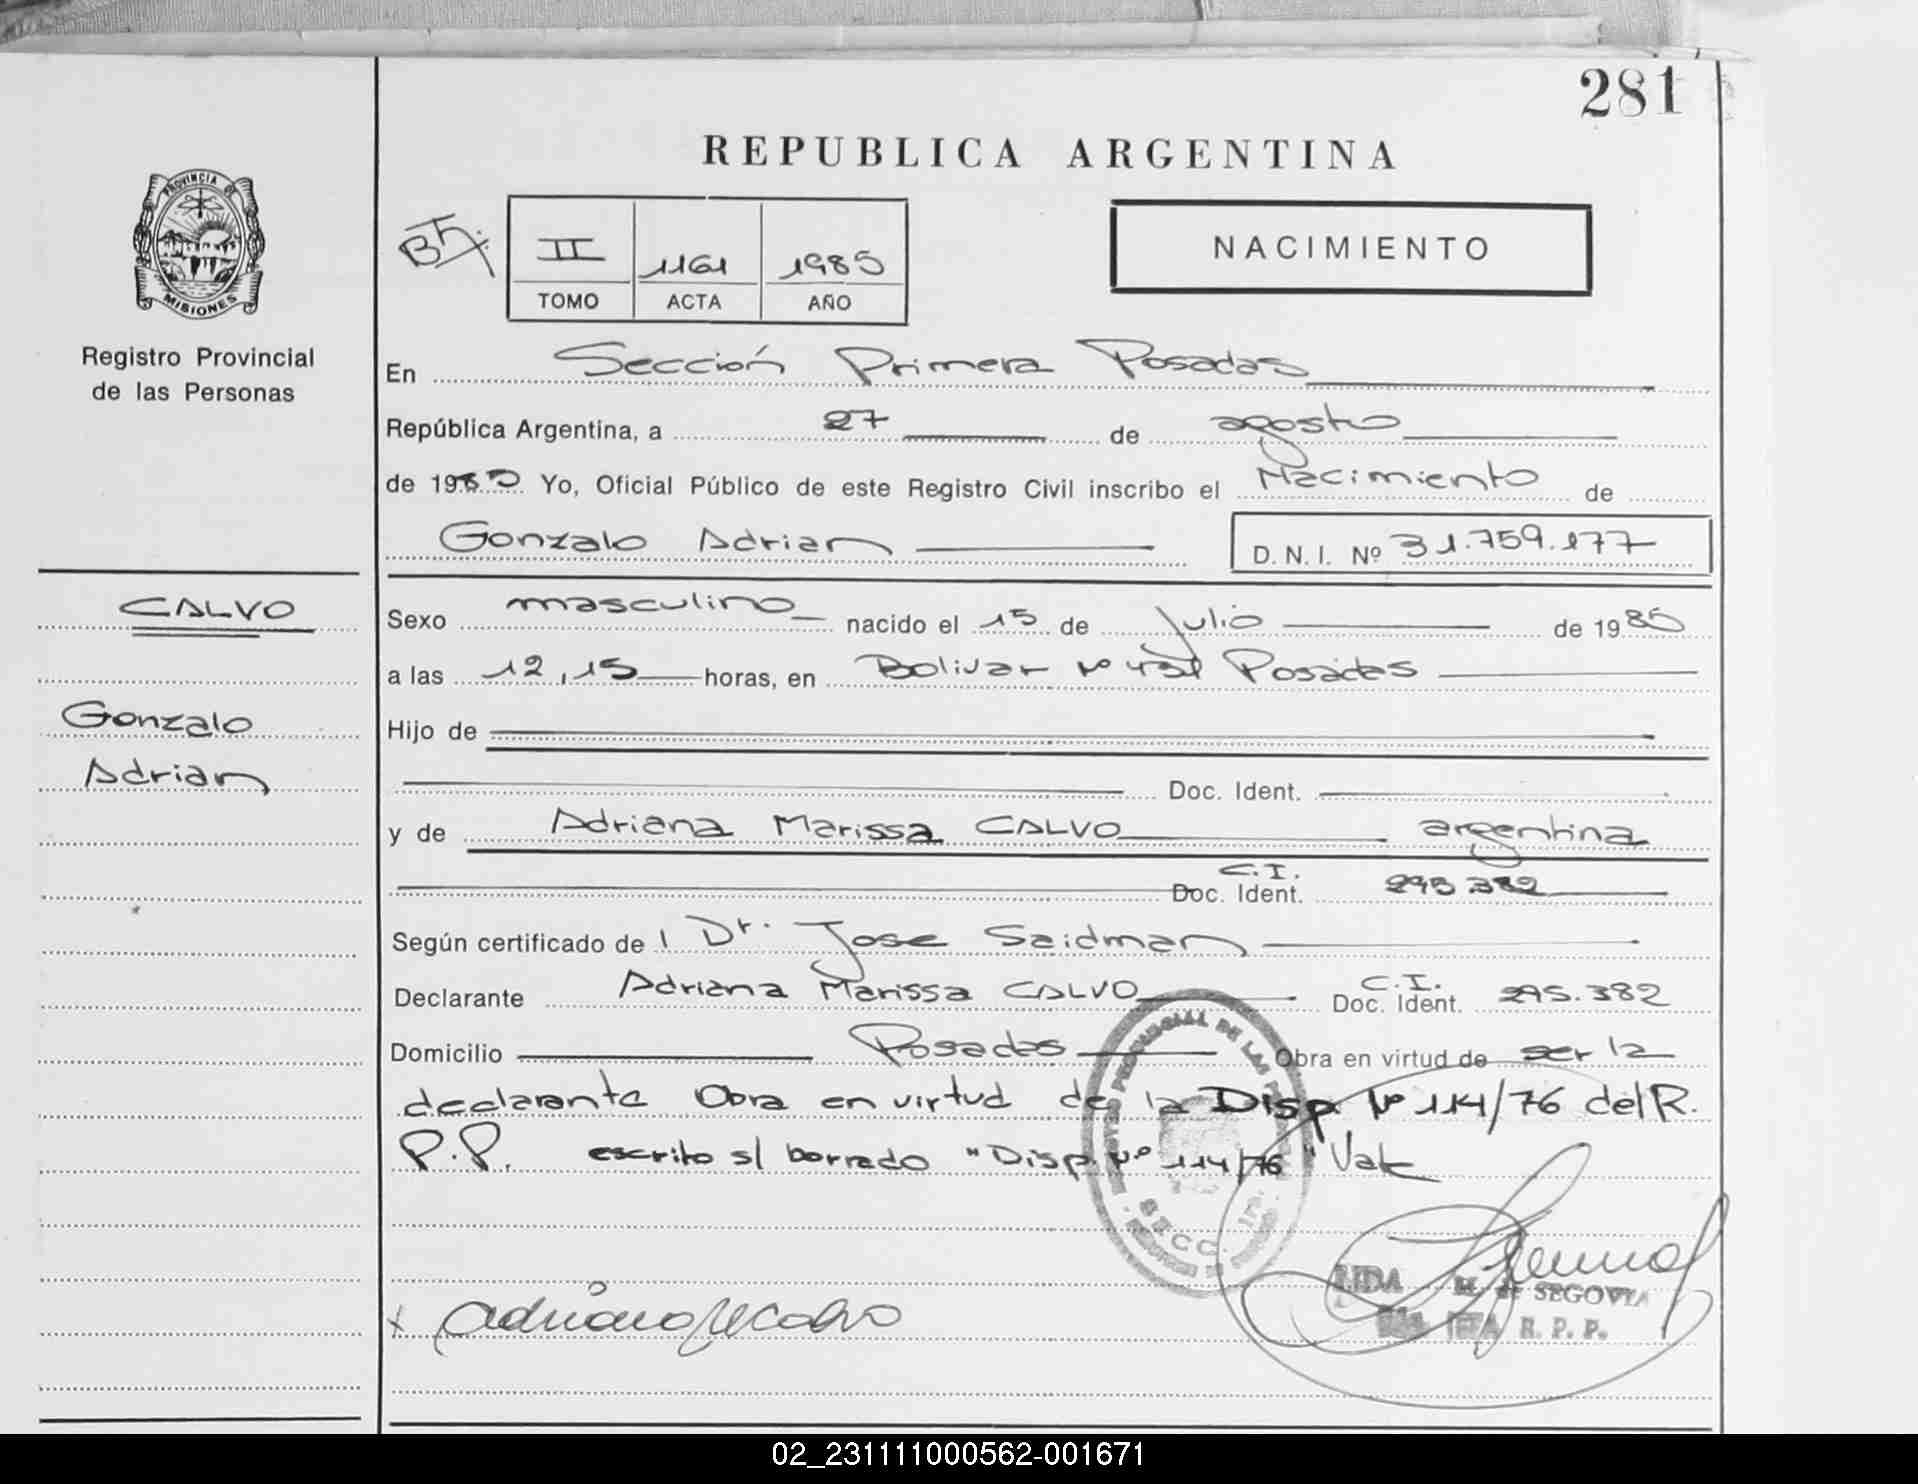 281
REPUBLICA ARGENTINA
PROVINCIA DE
MISIONES
Registro Provincial
de las Personas
II 1161 1985
TOMO ACTA AÑO
NACIMIENTO
En Sección Primera Posadas
República Argentina, a 27 de agosto
de 19 Yo, Oficial Público de este Registro Civil inscribo el Nacimiento de
Gonzalo Adrian D. N. I. Nº 31.759.177
CALVO
Gonzalo
Adrian
Sexo masculino nacido el 15 de Julio de 1985
a las 12,15 horas, en Bolivar Nº Posadas
Hijo de
Doc. Ident.
y de Adriana Marissa CALVO argentina
C.I.
Doc. Ident. 295.382
Según certificado de Dr. Jose Saidman
Declarante Adriana Marissa CALVO C.I. Doc. Ident. 295.382
Domicilio Posadas Obra en virtud de ser la
declarante Obra en virtud de la Disp Nº 114/76 del R.
P.P. escrito s/ borrado "Disp. Nº 114/76" Vale
SECC. 1ra.
LIDA M. de SEGOVIA
R. P. P.
02_231111000562-001671